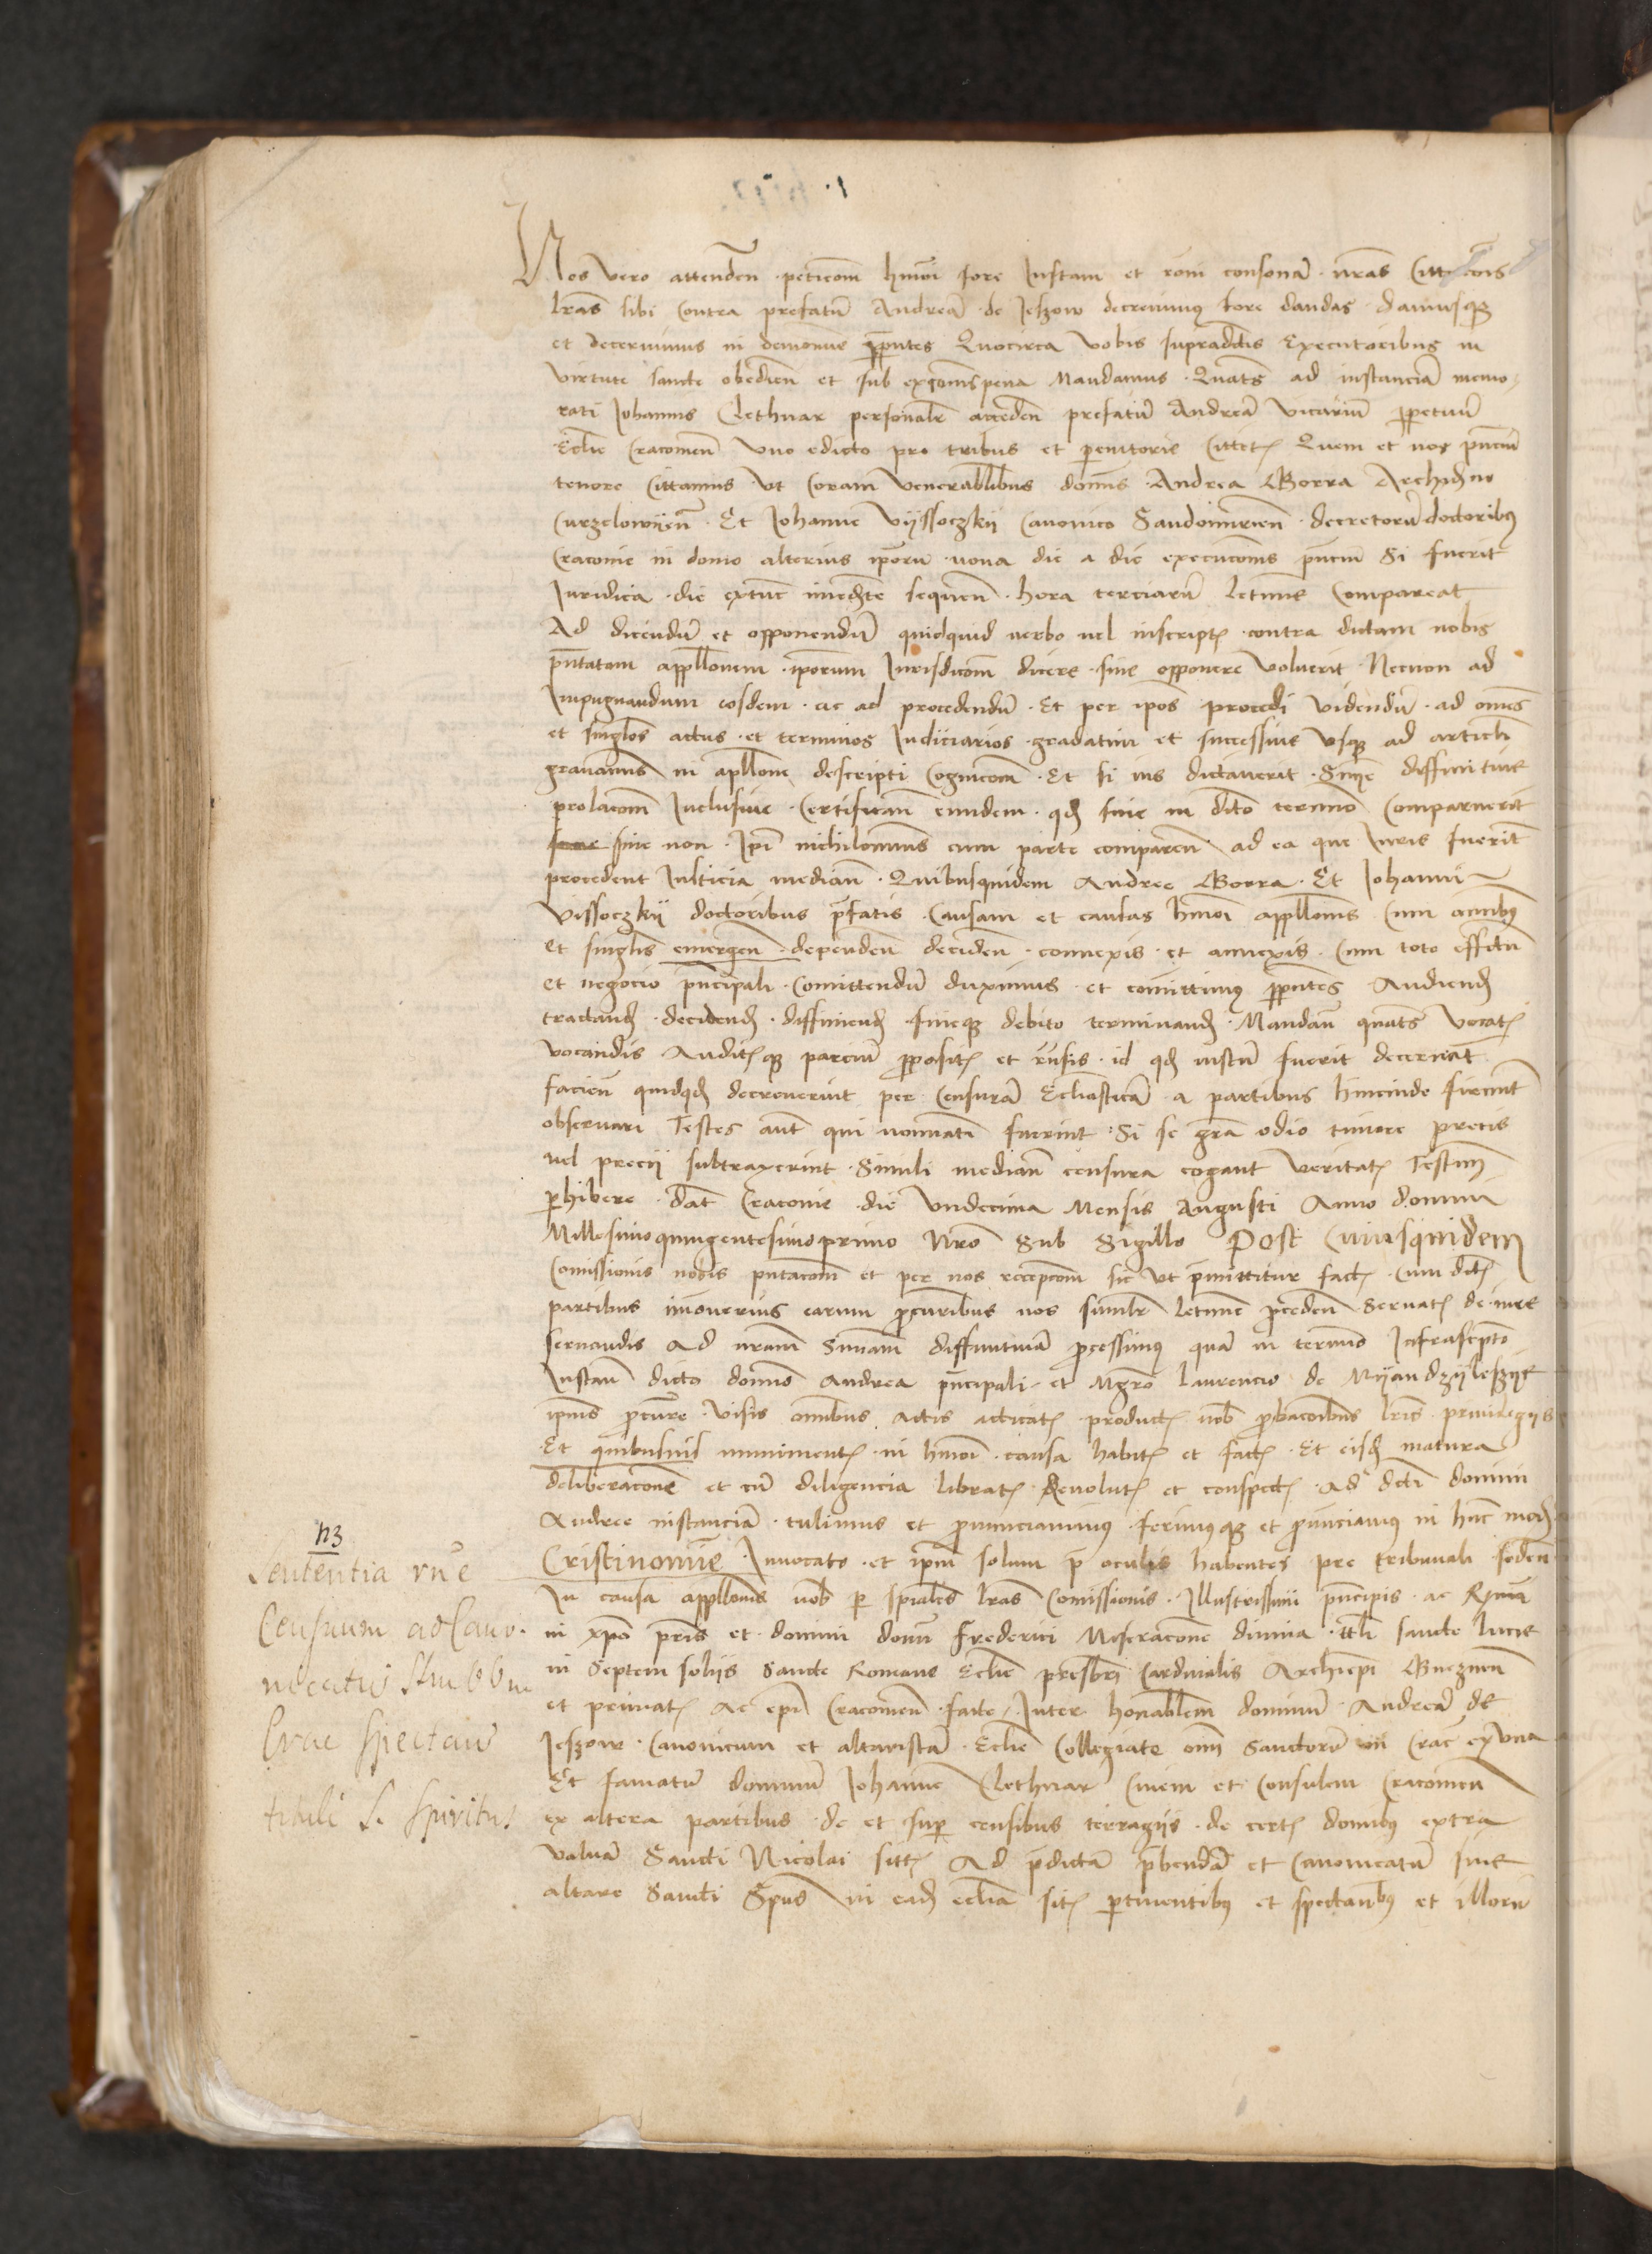 Nos vero attenden peticom hmoi fore Iustam et roni consona nras Citacois
lras sibi Contra prefatu Andrea de Jeszow decrevimus fore dandas damusq
et decernimus in dei nomine p pntes Quocirca vobis supradictis Executoribus in
virtute sancte obedien et sub excomis pena Mandamus Quats ad instancia memo
rati Johannis Clethnar personalr acceden prefatu Andrea vicariu ppetuu
Eclie Cracouien Uno edicto pro tribus et peremtorie Cittet Quem et nos pntiu
tenore Cittamus Ut Coram venerabilibus domis Andrea Gorra Archidno
Curzelowien Et Johanne Vyssoczkij Canonico Sandomirien decretoru doctoribus
Cracouie in domo alterius iporu nona die a die execucois pntiu Si fuerit
Iuridica die extunc imediate sequen hora terciaru letime Compareat
Ad dicendu et opponendu quidquid verbo uel inscript contra dictam nobis
pntatam appllonem iporum Iurisdicom dicere siue opponere voluerit Necnon ad
Impugnandum eosdem ac ad procedendu Et per ipos procedi videndu ad omes
et singlos actus et terminos Iudiciarios gradatim et successive usq ad articli
grauaminis in apllone descripti Cognicom Et si ius dictauerit Snie diffinitiue
prolacom Inclusiue Certifican eundem qd siue in dito termino Comparuerit
siue non Ipi nichilominus cum parte comparen ad ea que Iuris fuerit
procedent Iusticia median Quibusquidem Andree Gorra Et Johanni
Vissoczkij doctoribus pfatis Causam et causas hmoi appllonis Cum omnibus
et singlis emergen dependen deciden connexis et annexis Cum toto effectu
et negocio pncipali Comittendu duximus et comittimus p pntes Audiend
tractand decidend diffiniend fineq debito terminand Mandan quats vocat
vocandis Auditisq parciu pposit et rnsis id qd iustu fuerit decernat
facien quidqd decreuerint per Censura Ecliastica a partibus hincinde firmit
obseruari Testes aut qui nominati fuerint Si se gra odio timore precis
uel precij subtraxerint Simili median censura cogant veritat Testim
phibere dat Cracouie die Undecima Mensis Augusti Anno domini
Millesimoquingentesimoprimo Nro Sub Sigillo Post Cuiusquidem
Comissionis nobis pntacom et per nos recepcom sic ut pmittitur fact Cum dict
partibus imouerius earum pcuribus nos sumr letime pceden Seruat de iure
seruandis Ad nram Sniam diffinitiua pcessimus qua in termino Infrascpto
Instan dicto domo Andrea pncipali et Mgro Laurencio de Myandzyleszye
ipius pcure visis omibus actis acticat product nob pbacoibus lris priuilegijs
Et quibusuis muniment in hmoi causa habit et fact Et eisd matura
deliberacone et cu diligencia librat Reuolut et conspect Ad dcti domini
Andree instancia tulimus et pnunciauimus ferimusq et pnunciamus in hunc mod
Cristi nomine Inuocato et ipm solum p oculis habentes pro tribunali seden
In causa appllonis nob p spiales lras Comissionis Illustrissimi pncipis ac Rmi
in xpo pris et domini domi Frederici Miseracone diuina ttli sancte Lucie
in Septem solijs Sancte Romane Eclie presbri Cardinalis Archiepi Gneznen
et primat Ac epi Cracouien facte Inter honablem dominu Andrea de
Jeszow Canonicum et altarista Eclie Collegiate omi Sanctoru in Crac ex una
Et famatu dominu Johanne Clethnar Ciuem et Consulem Cracouien
ex altera partibus de et sup censibus terragijs de cert domibus extra
valua Sancti Nicolai sitt Ad pdicta pbenda et Canonicatu siue
altare Sancti Spus in ead eclia sit ptinentibus et spectantibus et illoru
n3
Sententia rne
Censuum ad Cano
nicatus
spectan
tituli S. Spiritus